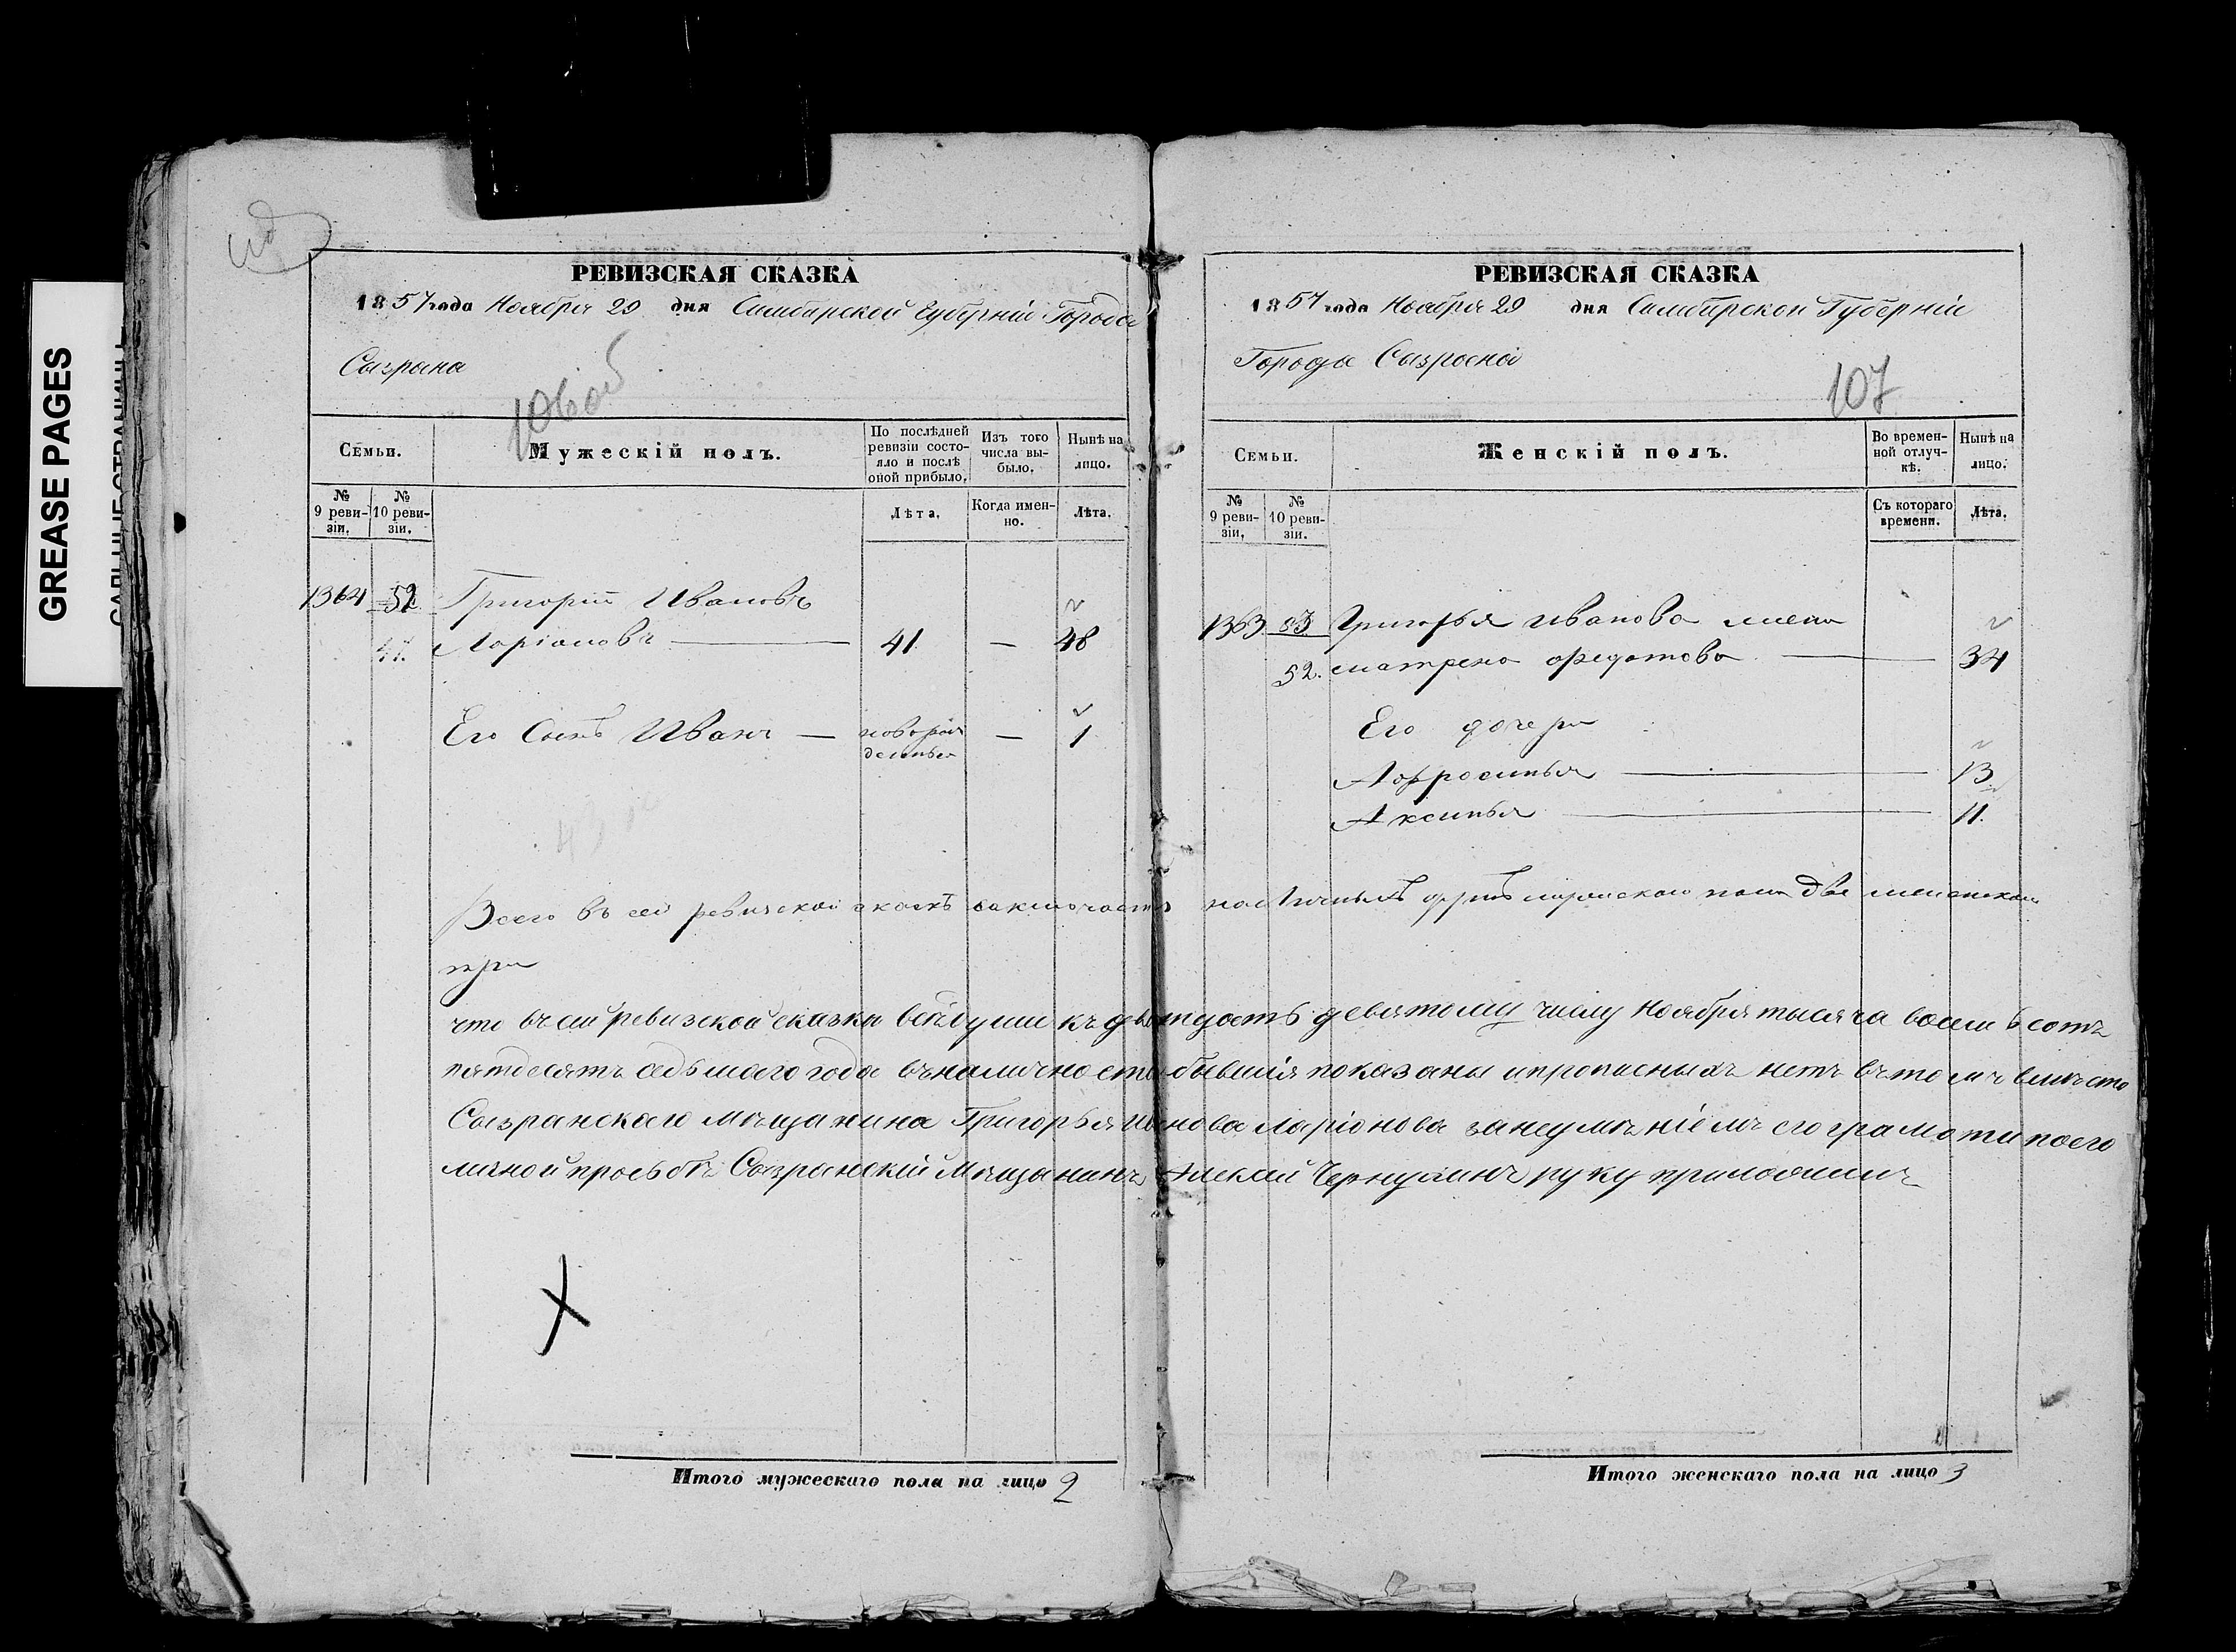 GREASE PAGES
РЕВИЗСКАЯ СКАЗКА
1857 года Ноября 29 дня Симбирской Губернiи Города
Сызрана
106 об
Семьи.
Мужескiй полъ.
По послѣдней ревизiи состояло и послѣ оной прибыло.
Изъ того числа выбыло.
Нынѣ на лицо.
№ 9 ревизiи.
№ 10 ревизiи.
Лѣта.
Когда именно.
Лѣта.
1364 52 Григорiй Ивановъ
Ларiоновъ — 41 — 48
Его Сынъ Иванъ — новорожденный — 1
Всего въ сей ревизской
три
Итого мужескаго пола на лицо 2
РЕВИЗСКАЯ СКАЗКА
1857 года Ноября 29 дня Симбирской Губернiи
Города Сызрана
107
Семьи.
Женскiй полъ.
Во временной отлучкѣ.
Нынѣ на лицо.
№ 9 ревизiи.
№ 10 ревизiи.
Съ котораго времени.
Лѣта.
1363 53 Григорья Иванова жена
52. матрена федотова — 34
Его дочери
Афросинья — 13
Аксинья — 11.
душъ мужскаго пола две женскаго
что въ сей ревизской сказки все души къ дватцать девятому числу Ноября тысяча восемьсотъ
пятдесятъ седьмаго года въ наличности бывшiя показаны и прописныхъ нетъ въ томъ вместо
Сызранскаго мещанина Григорья Иванова Ларiонова за неумѣнiемъ его грамоти по его
личной прозьбѣ Сызранскiй Мещанинъ Алексей руку приложилъ
Итого женскаго пола на лицо 3